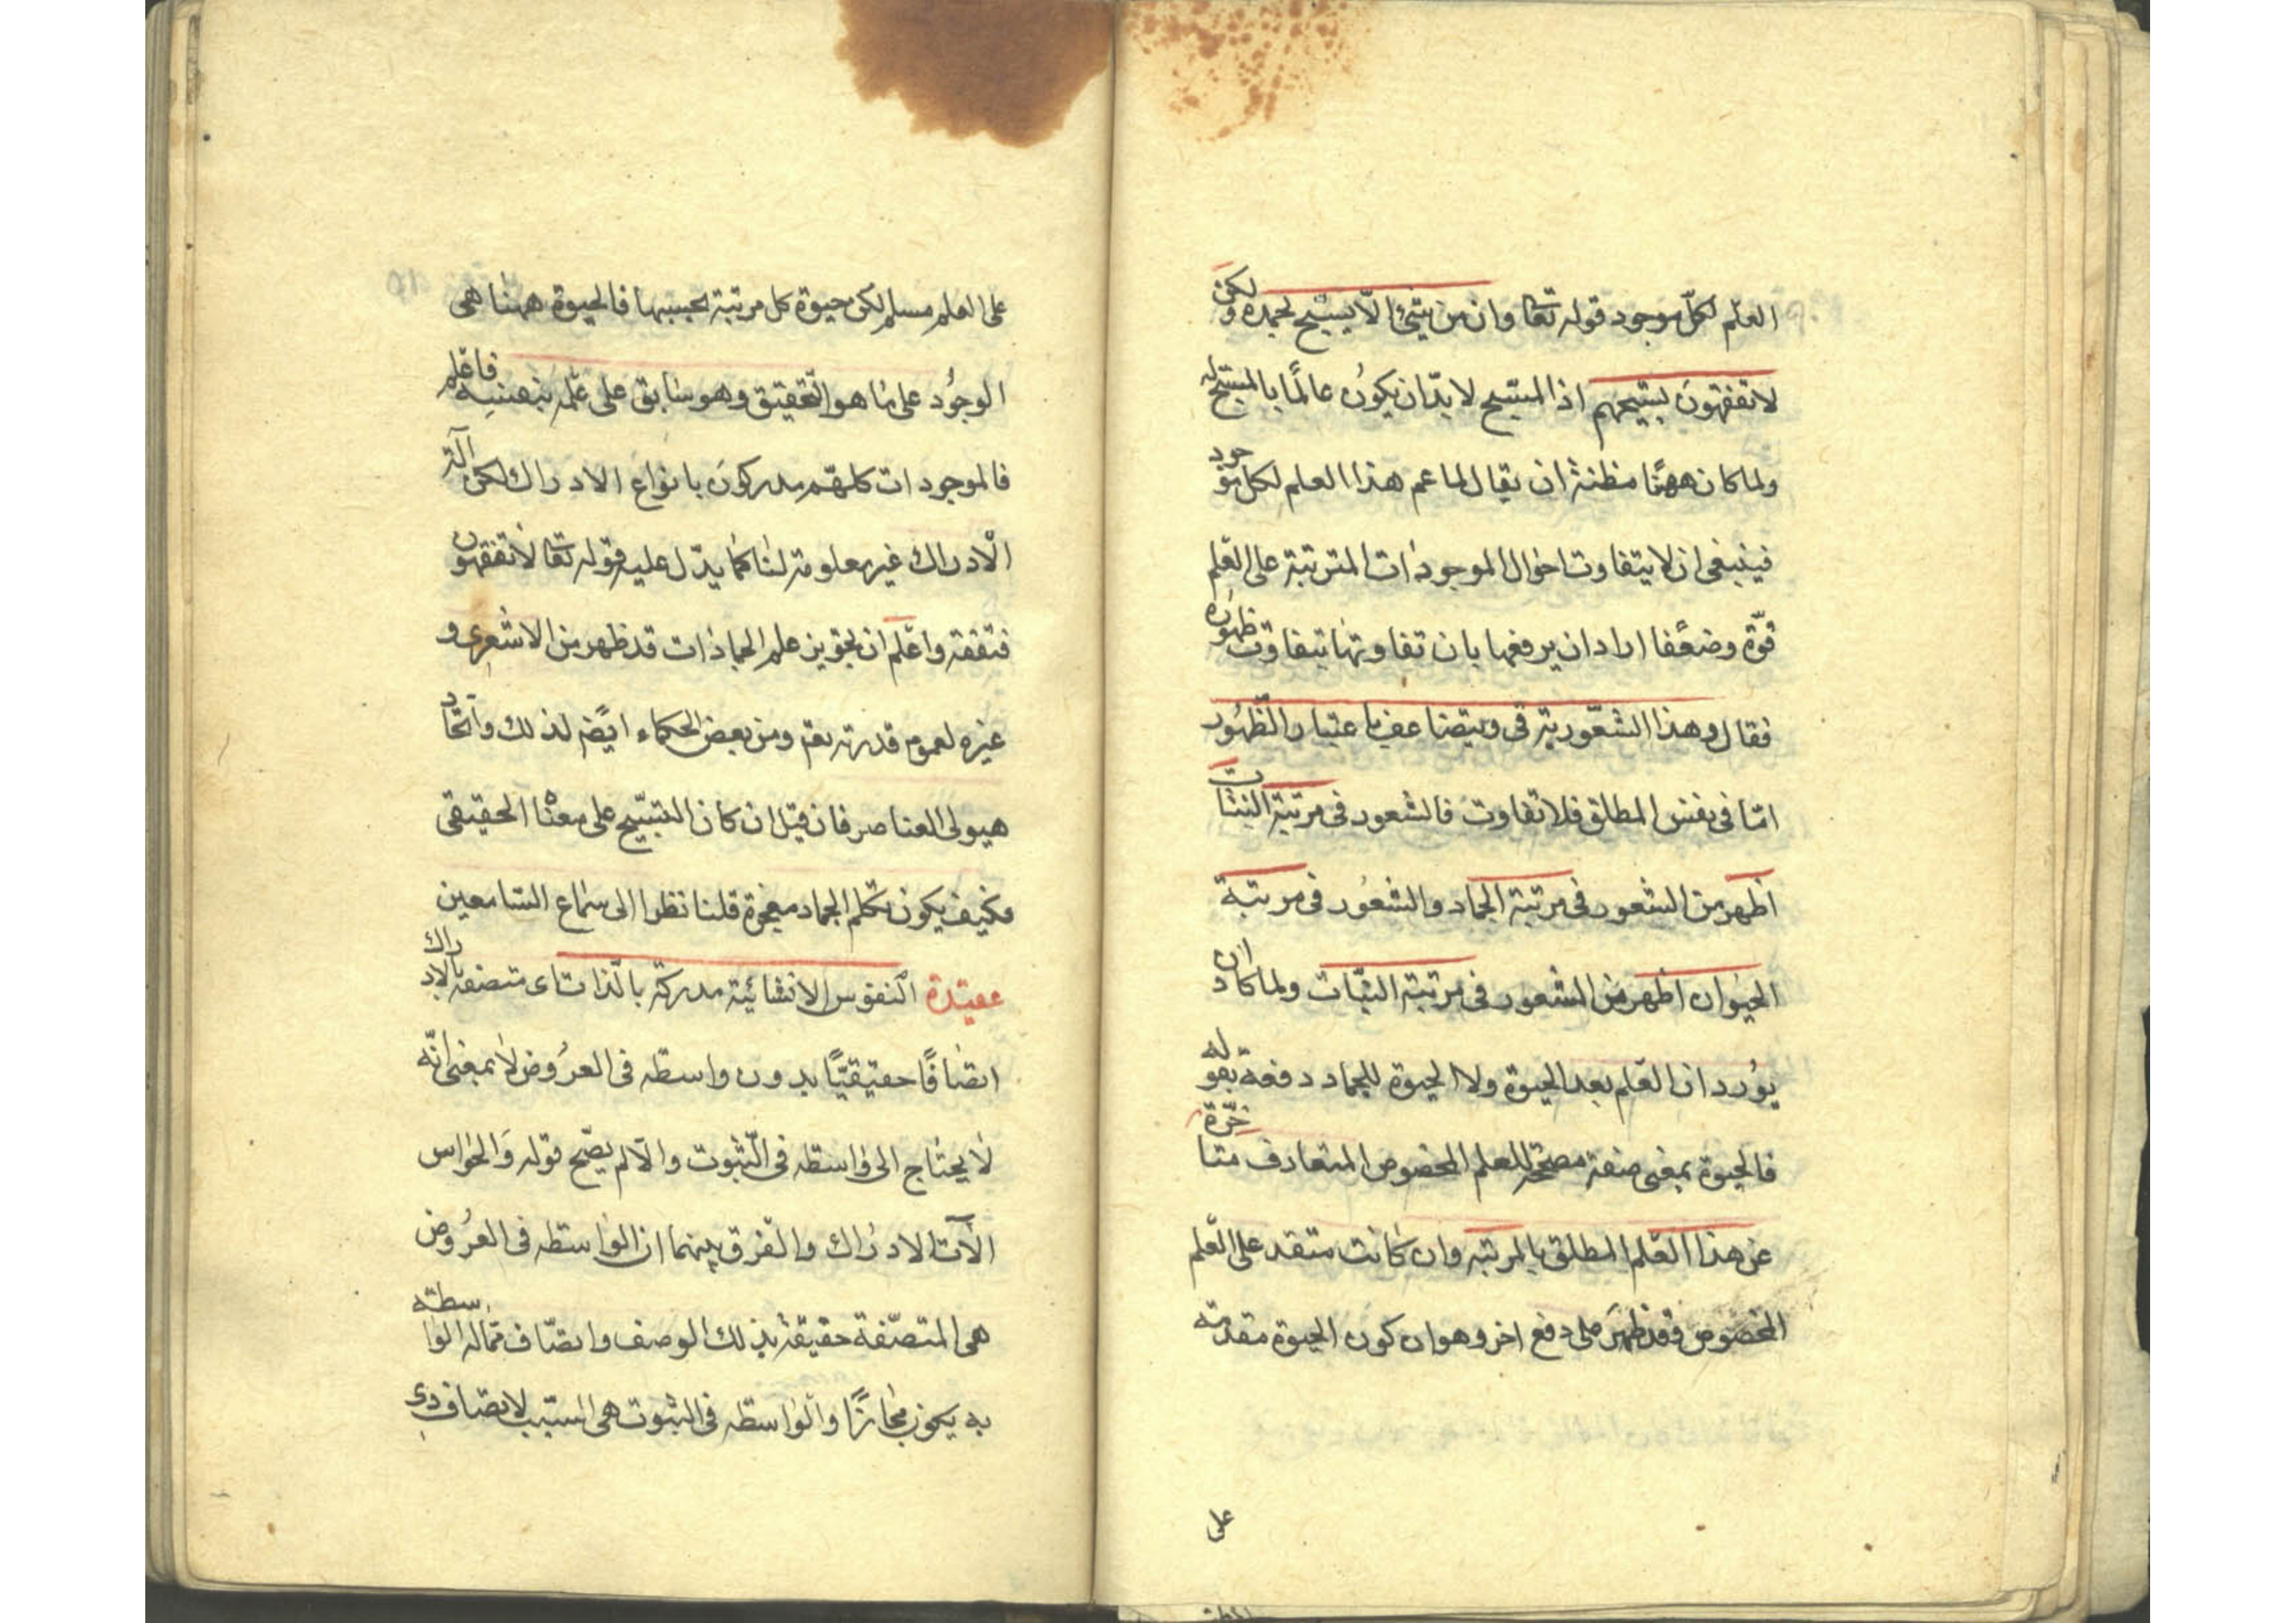 العلم لكلّ موجود قوله تعا وان من شئ الّا يسبّح بحمده ولكن
لا تفقهون تسبيحهم اذ المسبّح لا بدّ ان يكون عالمًا بالمسبّح له
ولما كان ههنا مظنة ان يقال لما عم هذا العلم لكل موجود
فينبغى ان لا يتفاوت احوال الموجودات المترتبة على العلم
قوّة وضعفا اراد ان يرفعها بان تفاوتها بتفاوت ظهوره
فقال وهذا الشعور يترقى ويتضاعف باعتبار الظهور
امّا فى نفس المطلق فلا تفاوت فالشعور فى مرتبة النبات
اظهر من الشعور فى مرتبة الجماد والشعور فى مرتبة
الحيوان اظهر من الشعور فى مرتبة النبات ولما كاد ان
يورد ان العلم بعد الحيوة ولا الحيوة للجماد دفعه بقوله
فالحيوة بمعنى صفة مصححة للعلم المخصوص المتعارف متاخرة
عن هذا العلم المطلق بالمرتبه وان كانت متقد على العلم
المخصوص فقد ظهر دفع اخر وهو ان كون الحيوة مقدمة
على
على العلم مسلم لكن حيوة كل مرتبة بحسبها فالحيوة ههنا هى
الوجود على ما هو التحقيق وهو سابق على علمه بنفسه فاعلم
فالموجودات كلهم مدركون بانواع الادراك لكن آلة
الادراك غير معلومة لنا كما يدّل عليه قوله تعا لا تفقهون
فتفقه واعلم ان تجويز علم الجمادات قد ظهر من الاشعرى و
غيره لعموم قدرته تعم ومن بعض الحكماء ايضًا لذلك واتحاد
هيولى العناصر فان قيل ان كان التسبّيح على معناه الحقيقى
فكيف يكون تكلم الجماد معجزة قلنا نظرا الى سماع السامعين
عقيدة النفوس الانسانية مدركة بالذات اى متصفة بالادراك
اتصافًا حقيقيًّا بدون واسطه فى العروض لا بمعنى انّه
لا يحتاج الى واسطه فى الثبوت والّا لم يصّح قوله والحواس
الآت الادراك والفرق بينهما ان الواسطه فى العروض
هى المتصّفة حقيقة بذلك الوصف واتصاف ماله الواسطة
به يكون مجازًا والواسطه فى الثبوت هى السبب لاتصاف ذى